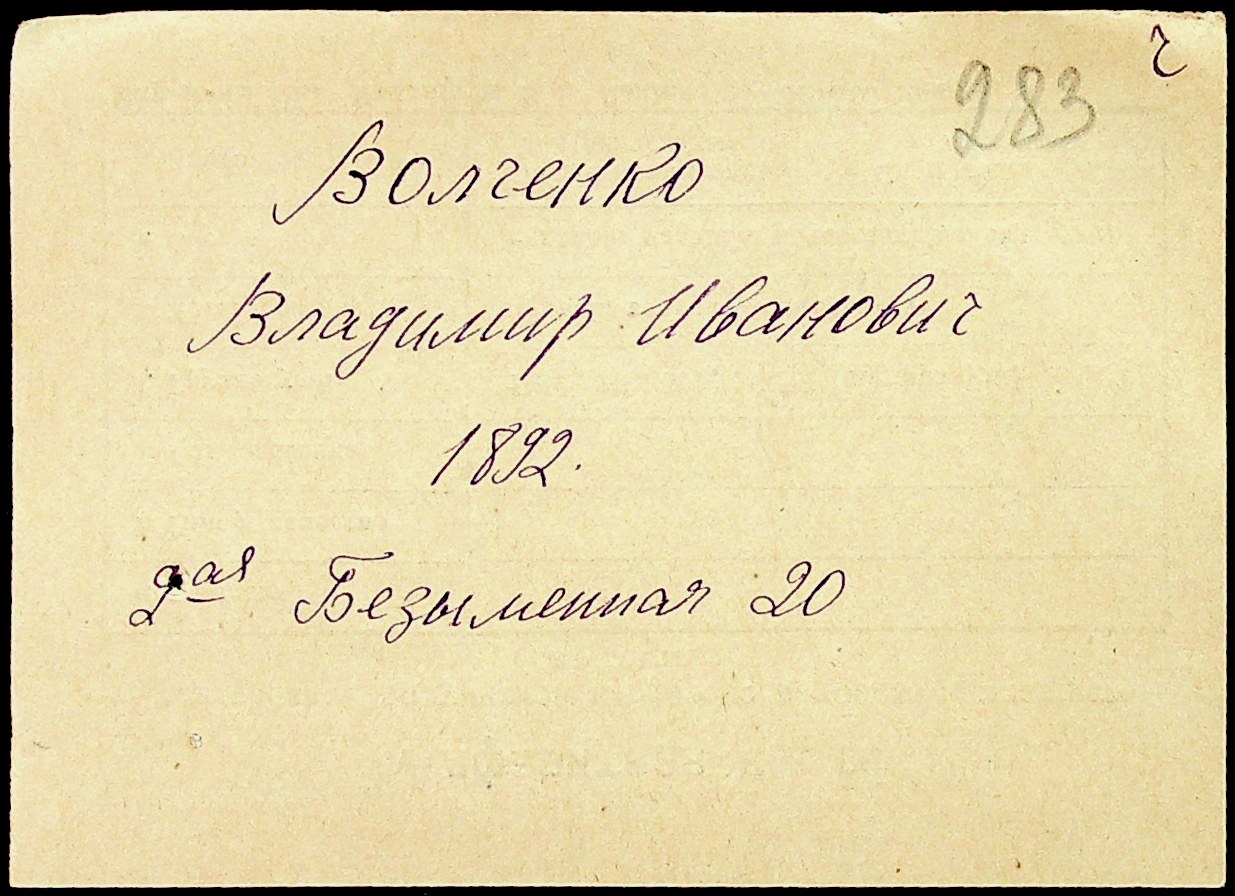 ч
283
Волченко
Владимир Иванович
1892.
2ая Безыменная 20